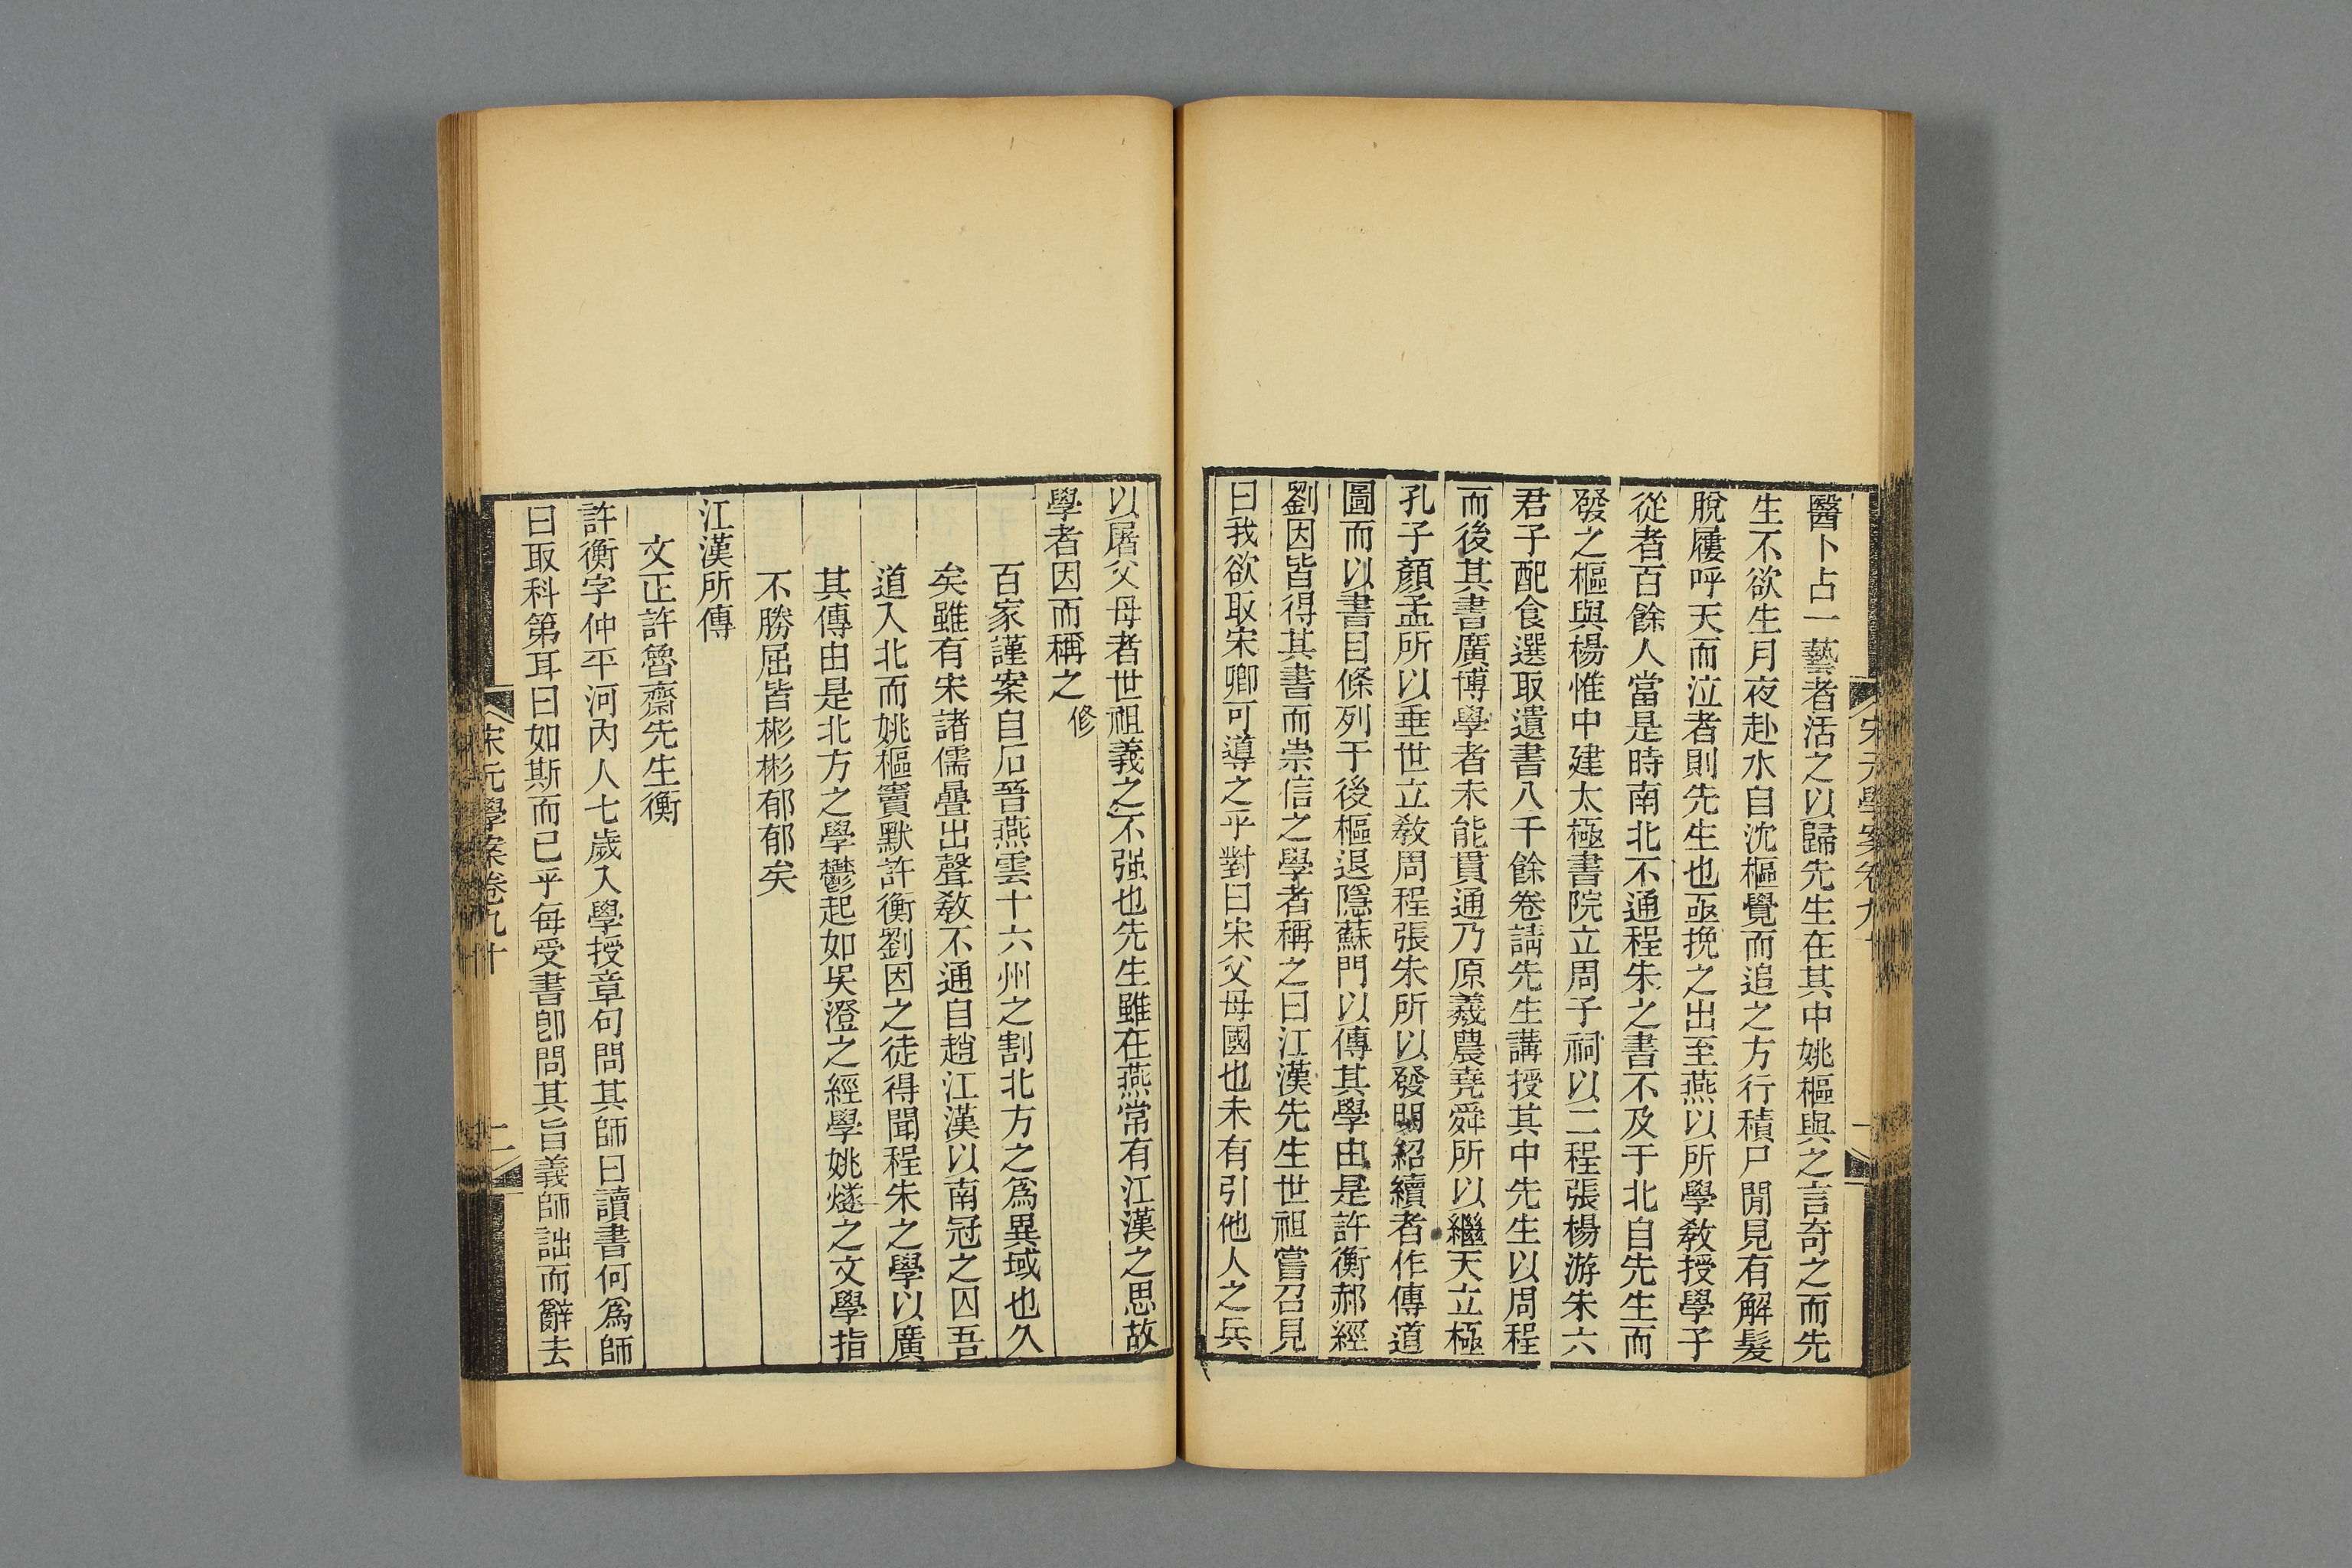 醫卜占一藝者活之以歸先生在其中姚樞與之言奇之而先
生不欲生月夜赴水自沈樞覺而追之方行積尸閒見有解髮
脫屨呼天而泣者則先生也亟挽之出至燕以所學敎授學子
從者百餘人當是時南北不通程朱之書不及于北自先生而
發之樞與楊惟中建太極書院立周子祠以二程張楊游朱六
君子配食選取遺書八千餘卷請先生講授其中先生以周程
而後其書廣博學者未能貫通乃原羲農堯舜所以繼天立極
孔子顏孟所以垂世立敎周程張朱所以發明紹續者作傳道
圖而以書目條列于後樞退隱蘇門以傳其學由是許衡郝經
劉因皆得其書而崇信之學者稱之曰江漢先生世祖嘗召見
曰我欲取宋卿可導之乎對曰宋父母國也未有引他人之兵
以屠父母者世祖義之不强也先生雖在燕常有江漢之思故
學者因而稱之修
百家謹案自石晉燕雲十六州之割北方之爲異域也久
矣雖有宋諸儒疊出聲敎不通自趙江漢以南冠之囚吾
道入北而姚樞竇默許衡劉因之徒得聞程朱之學以廣
其傳由是北方之學鬱起如吳澄之經學姚燧之文學指
不勝屈皆彬彬郁郁矣
江漢所傳
文正許魯齋先生衡
許衡字仲平河內人七歲入學授章句問其師曰讀書何爲師
曰取科第耳曰如斯而已乎每受書卽問其旨義師詘而辭去
宋元學案卷九十
二